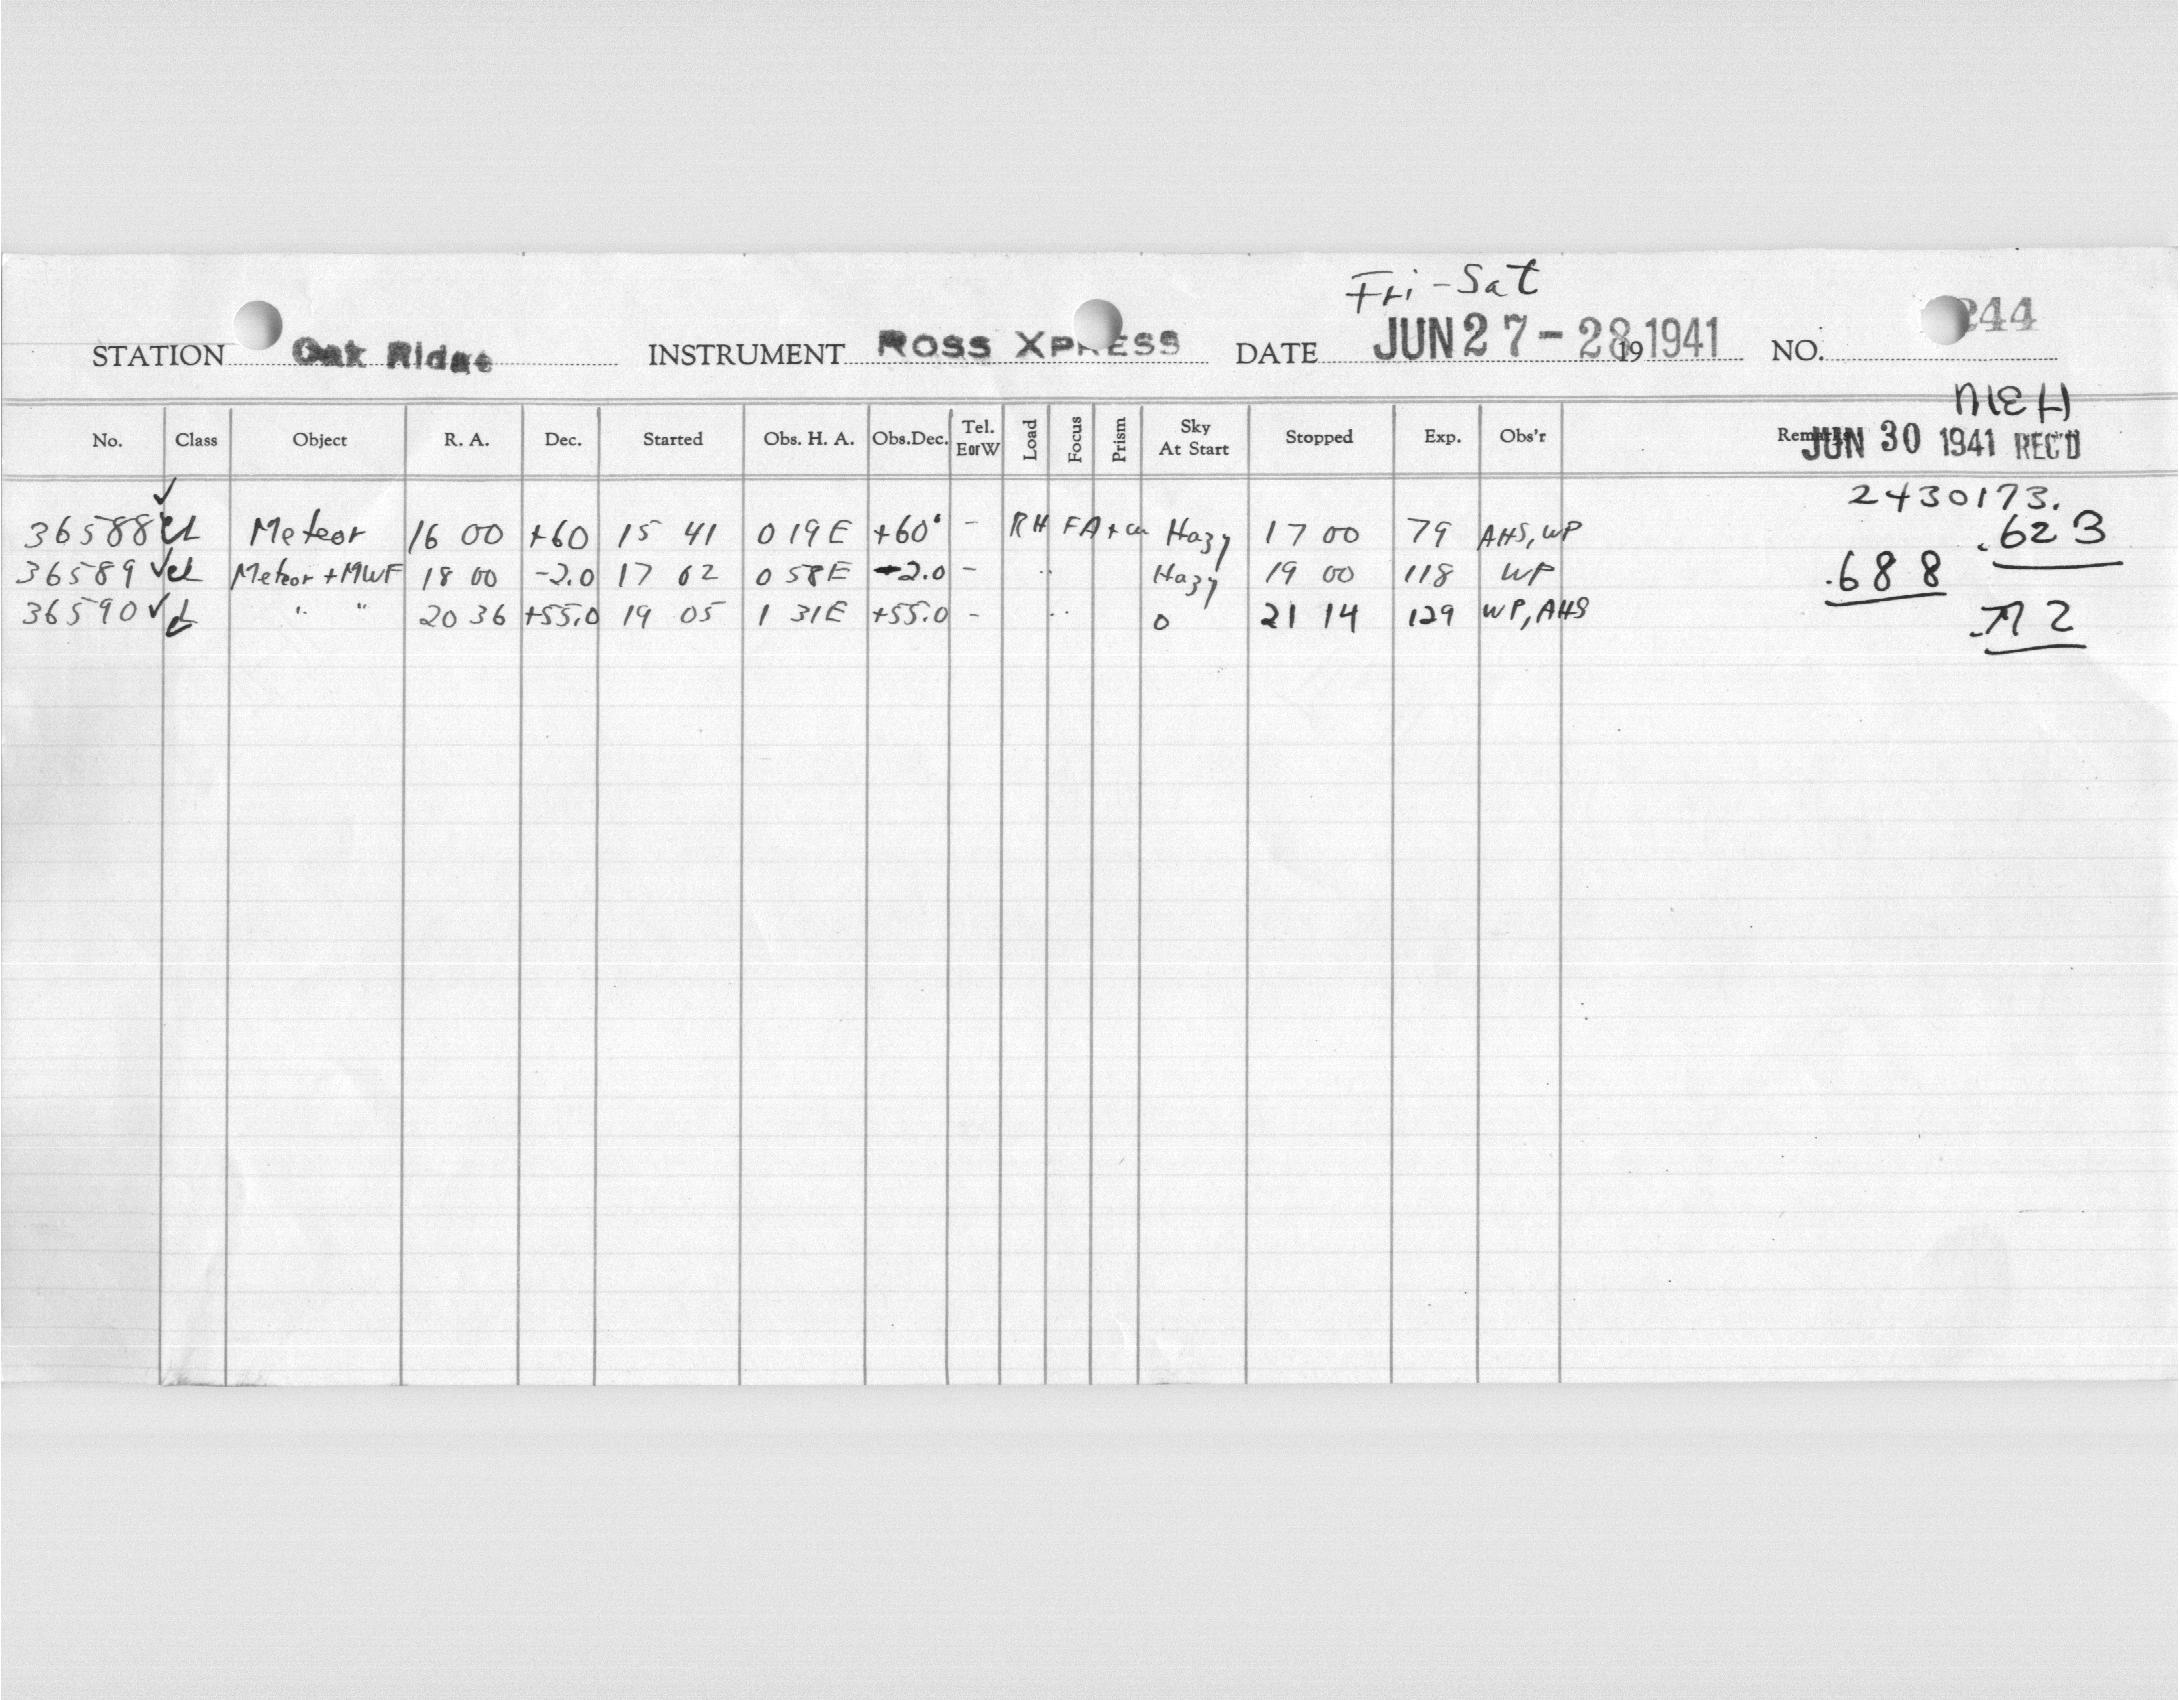 Fri - Sat
STATION Oak Ridge INSTRUMENT ROSS XPRESS DATE JUN 27 - 28 19 1941 NO. 244
MEH
No. Class Object R. A. Dec. Started Obs. H. A. Obs.Dec. Tel. E or W Load Focus Prism Sky At Start Stopped Exp. Obs'r Remarks JUN 30 1941 REC'D
2430173.
36588 ✓ Meteor 16 00 +60 15 41 0 19 E +60° - RH FA + Hazy 17 00 79 AHS, WP .623
36589 ✓ Meteor + MWF 18 00 -2.0 17 02 0 58 E -2.0 - .. Hazy 19 00 118 WP .688
36590 ✓ " " 20 36 +55.0 19 05 1 31 E +55.0 - .. 0 21 14 129 WP, AHS .772